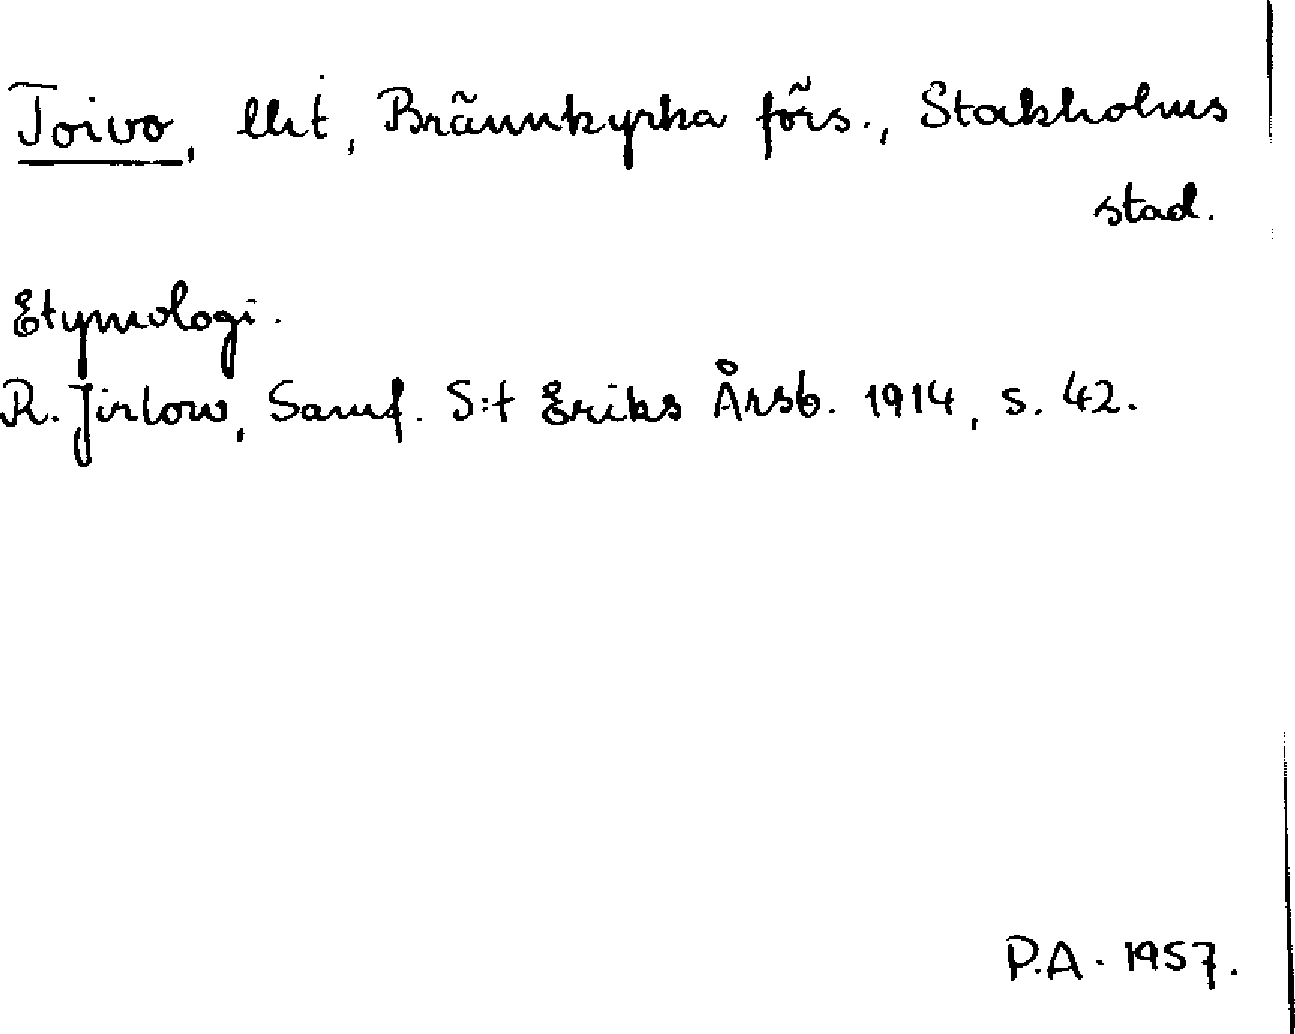 Toivo, lht, Brännkyrka förs., Stockholms
stad.
Etymologi.
R. Jirlow, Samf. S:t Eriks Årsb. 1914, s. 42.
P.A. 1957.